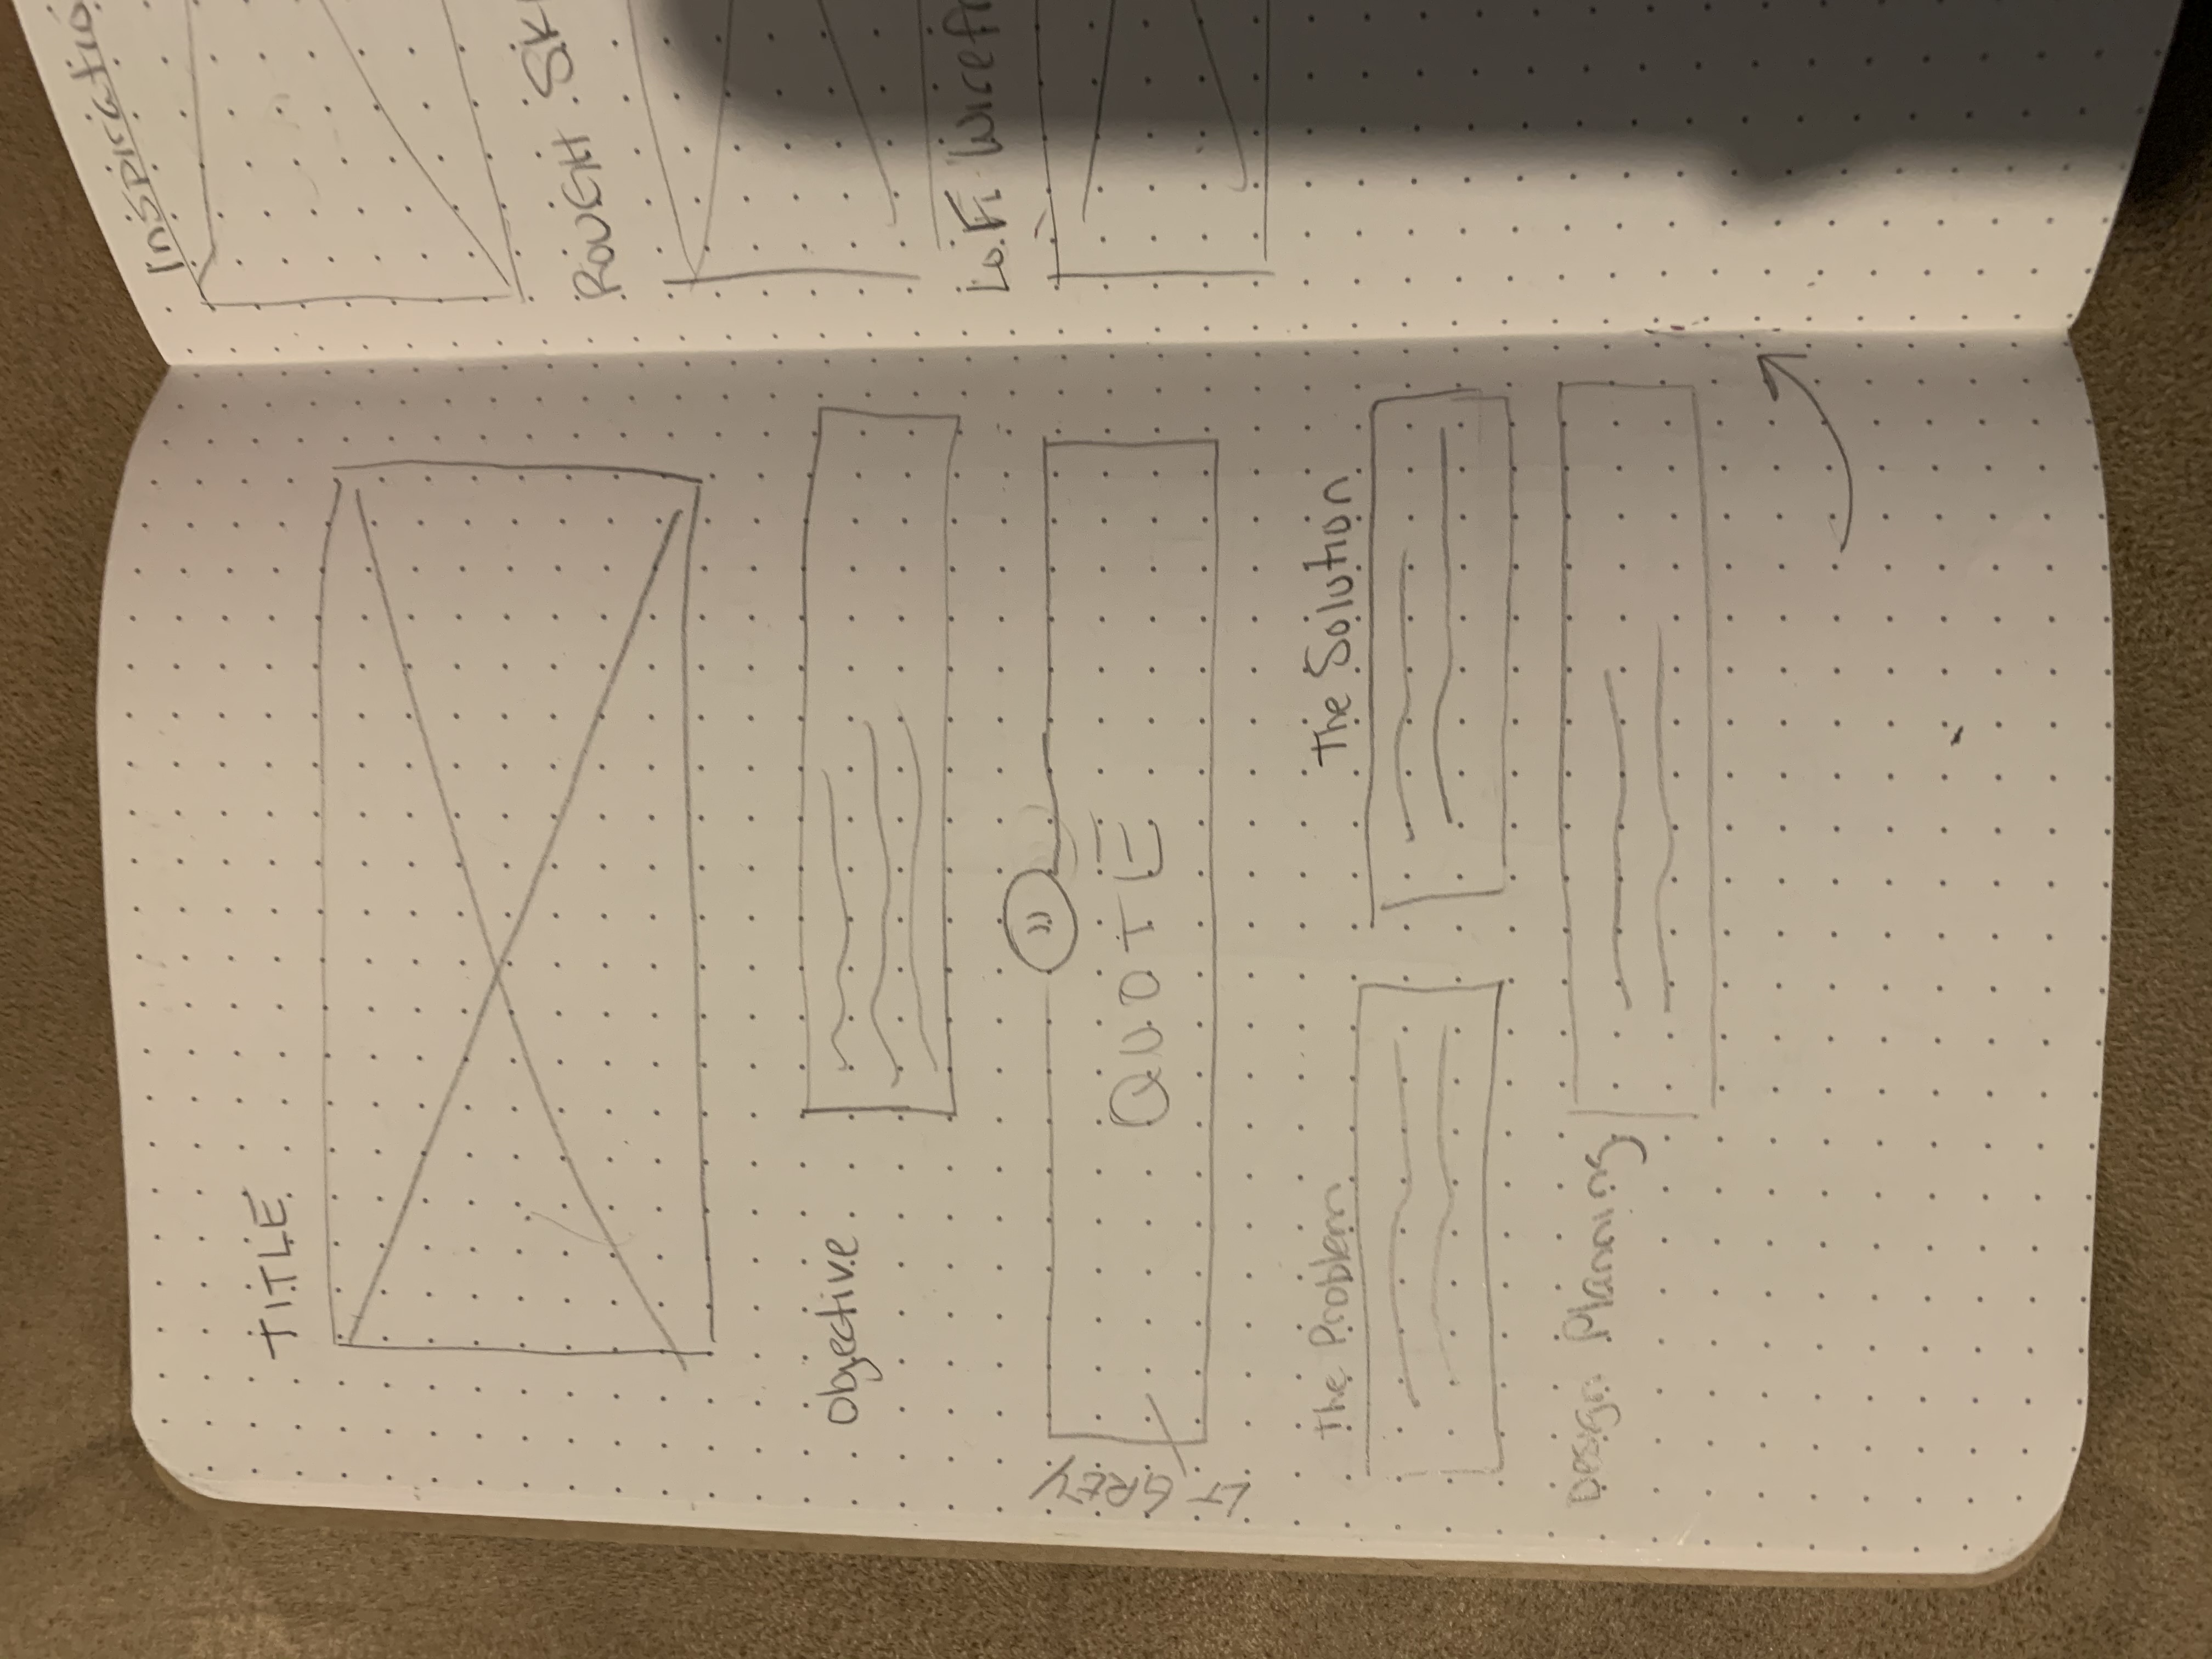 TITLE
Objective
"
QUOTE
LT GREY
The Problem
The Solution
Design Planning
Inspiratio
ROUGH SK
Lo.Fi Wirefr